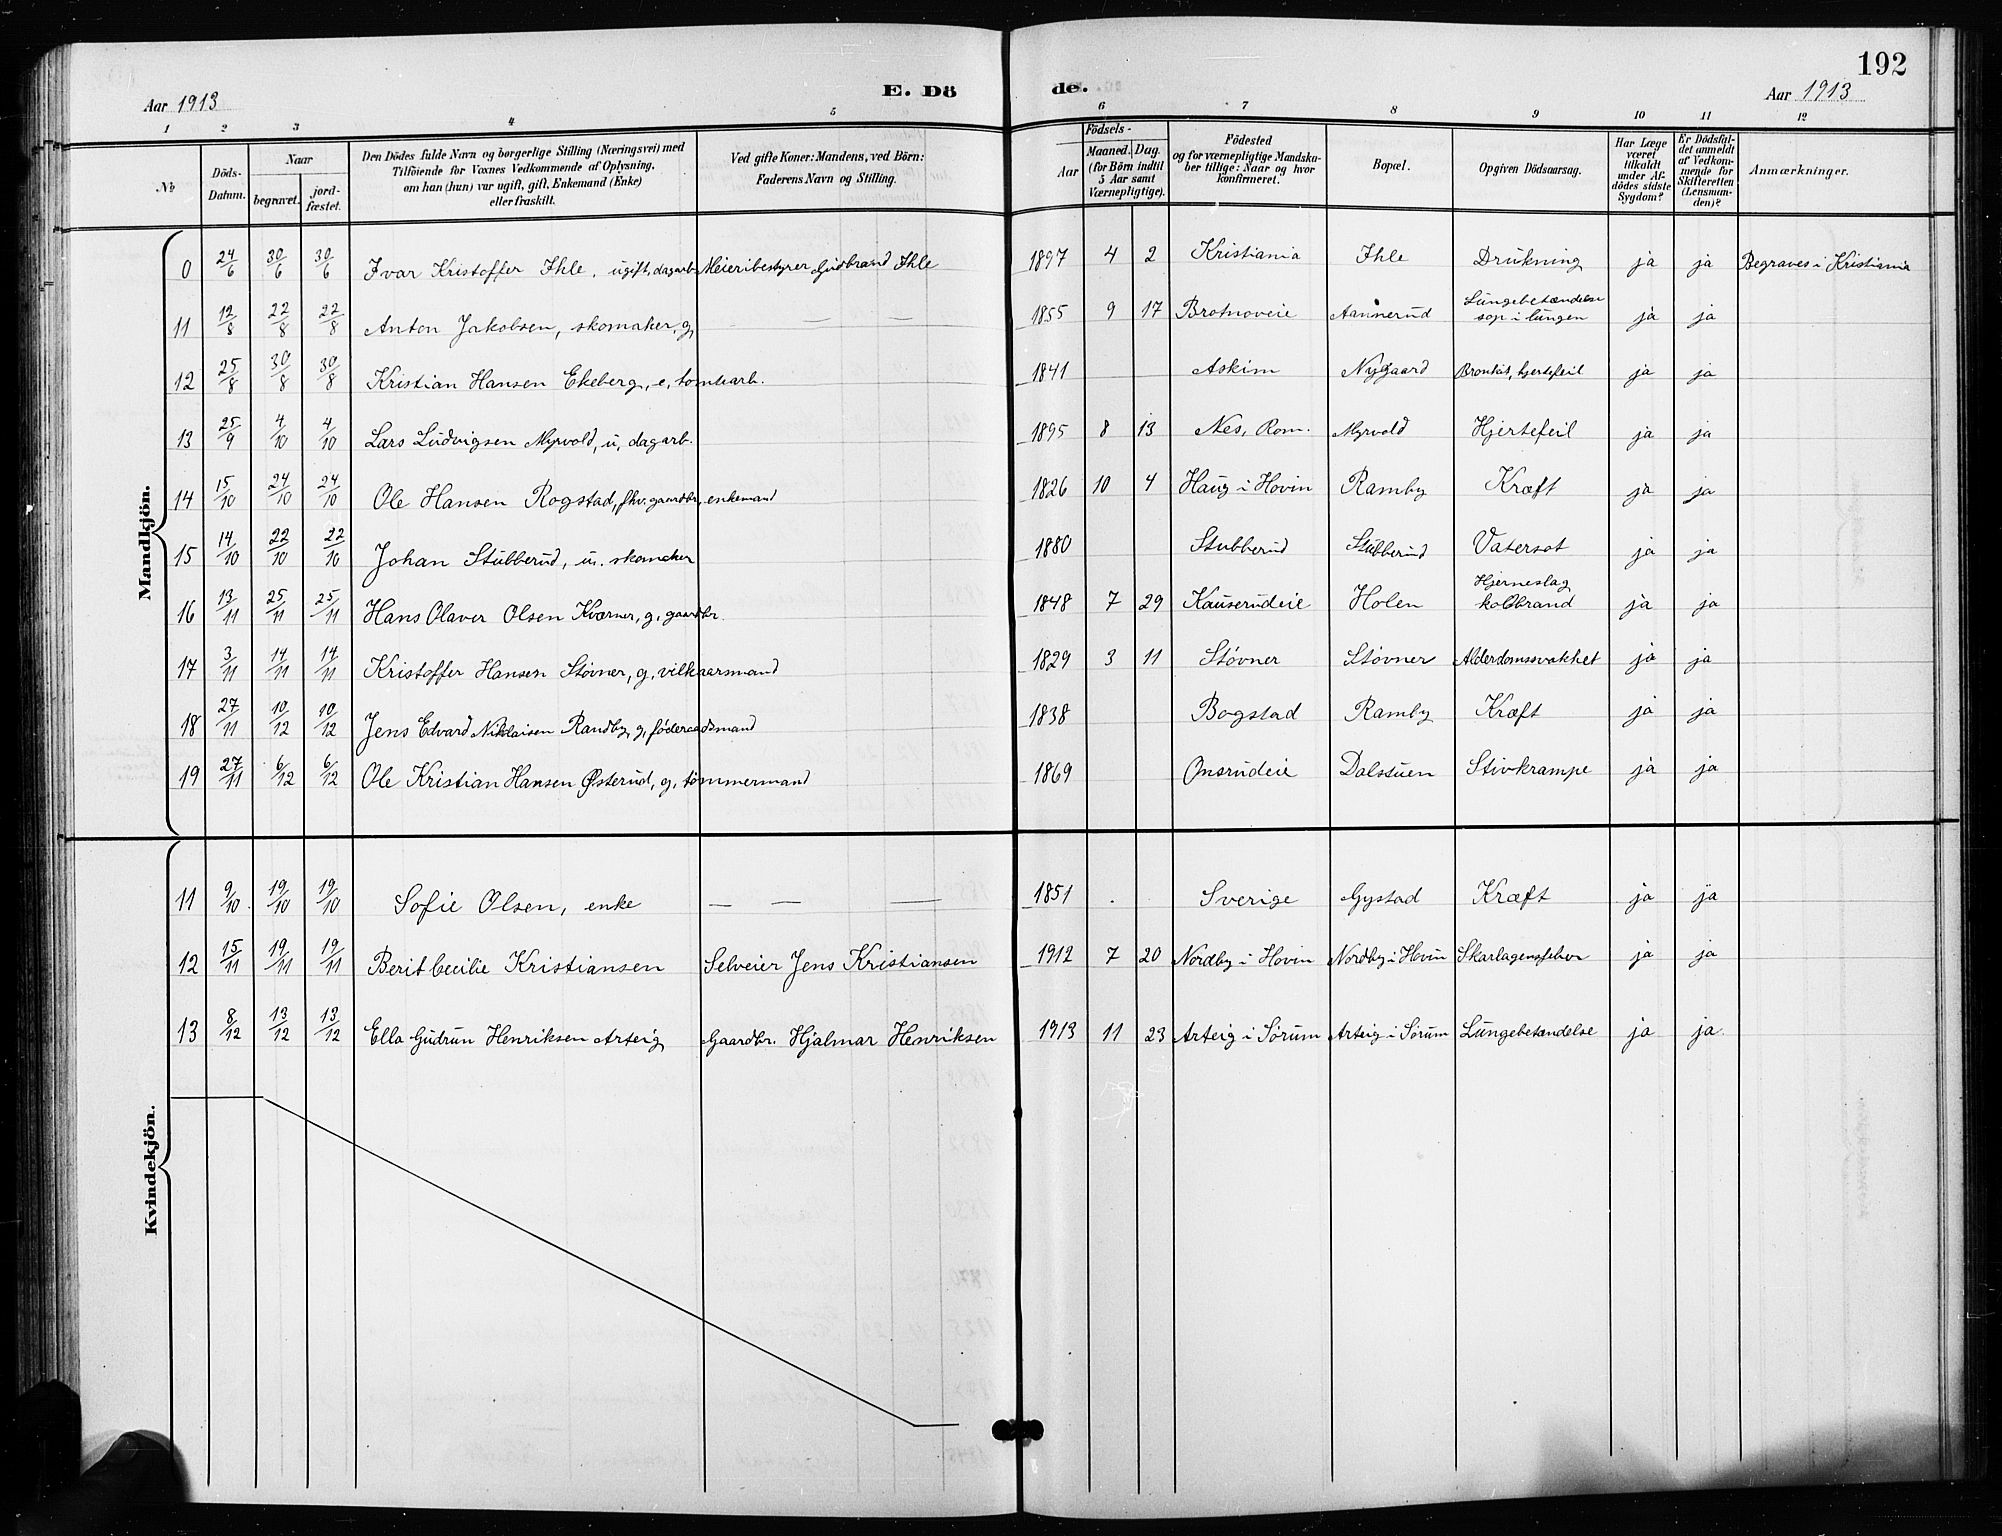 192
Aar 1913 E. Dö de. Aar 1913
1 2 3 4 5 6 7 8 9 10 11 12
No
Döds-Datum.
Naar
begravet.
jord-fæstet.
Den Dödes fulde Navn og borgerlige Stilling (Næringsvei) med
Tilföiende for Voxnes Vedkommende af Oplysning,
om han (hun) var ugift, gift, Enkemand (Enke)
eller fraskilt.
Ved gifte Koner: Mandens, ved Börn:
Faderens Navn og Stilling.
Födsels-
Aar
Maaned. Dag.
(for Börn indtil
5 Aar samt
Værnepligtige).
Födested
og for værnepligtige Mandska-
ber tillige: Naar og hvor
konfirmeret.
Bopæl.
Opgiven Dödsaarsag.
Har Læge
været
tilkaldt
under Af-
dödes sidste
Sygdom?
Er Dödsfal-
det anmeldt
af Vedkom-
mende for
Skifteretten
(Lensman-
den)?
Anmærkninger.
Mandkjön.
0 24/6 30/6 30/6 Ivar Kristoffer Ihle, ugift, dagarb. Meieribestyrer Gudbrand Ihle 1897 4 2 Kristiania Ihle Drukning ja ja Begraves i Kristiania
11 12/8 22/8 22/8 Anton Jakobsen, skomaker, g, — — — 1855 9 17 Aannerud Lungebetændelse
sop i lungen ja ja
12 25/8 30/8 30/8 Kristian Hansen Ekeberg, e, tomtearb. 1841 Askim Nygaard Bronkit, hjertefeil ja ja
13 25/9 4/10 4/10 Lars Ludvigsen Myrvold, u, dagarb. 1895 8 13 Nes, Rom. Myrvold Hjertefeil ja ja
14 15/10 24/10 24/10 Ole Hansen Rogstad, fhv. gaardbr, enkemand 1826 10 4 Haug i Hovin Ramby Kræft ja ja
15 14/10 22/10 22/10 Johan Stubberud, u. skomaker 1880 Stubberud Stubberud Vatersot ja ja
16 13/11 25/11 25/11 Hans Olaver Olsen Kværner, g, gaardbr. 1848 7 29 Kauserudeie Holen Hjerneslag
kolbrand ja ja
17 3/11 14/11 14/11 Kristoffer Hansen Støvner, g, vilkaarsmand 1829 3 11 Støvner Støvner Alderdomssvakhet ja ja
18 27/11 10/12 10/12 Jens Edvard Nikolaisen Randby, g, føderaadsmand 1838 Bogstad Ramby Kræft ja ja
19 27/11 6/12 6/12 Ole Kristian Hansen Østerud, g, tømmermand 1869 Onsrudeie Dalstuen Stivkrampe ja ja
Kvindekjön.
11 9/10. 19/10 19/10 Sofie Olsen, enke — — — 1851 . Sverige Gystad Kræft ja ja
12 15/11 19/11 19/11 Berit Cecilie Kristiansen Selveier Jens Kristiansen 1912 7 20 Nordby i Hovin Nordby i Hovin Skarlagensfeber ja ja
13 8/12 13/12 13/12 Ella Gudrun Henriksen Arteig Gaardbr. Hjalmar Henriksen 1913 11 23 Arteig i Sørum Arteig i Sørum Lungebetændelse ja ja.